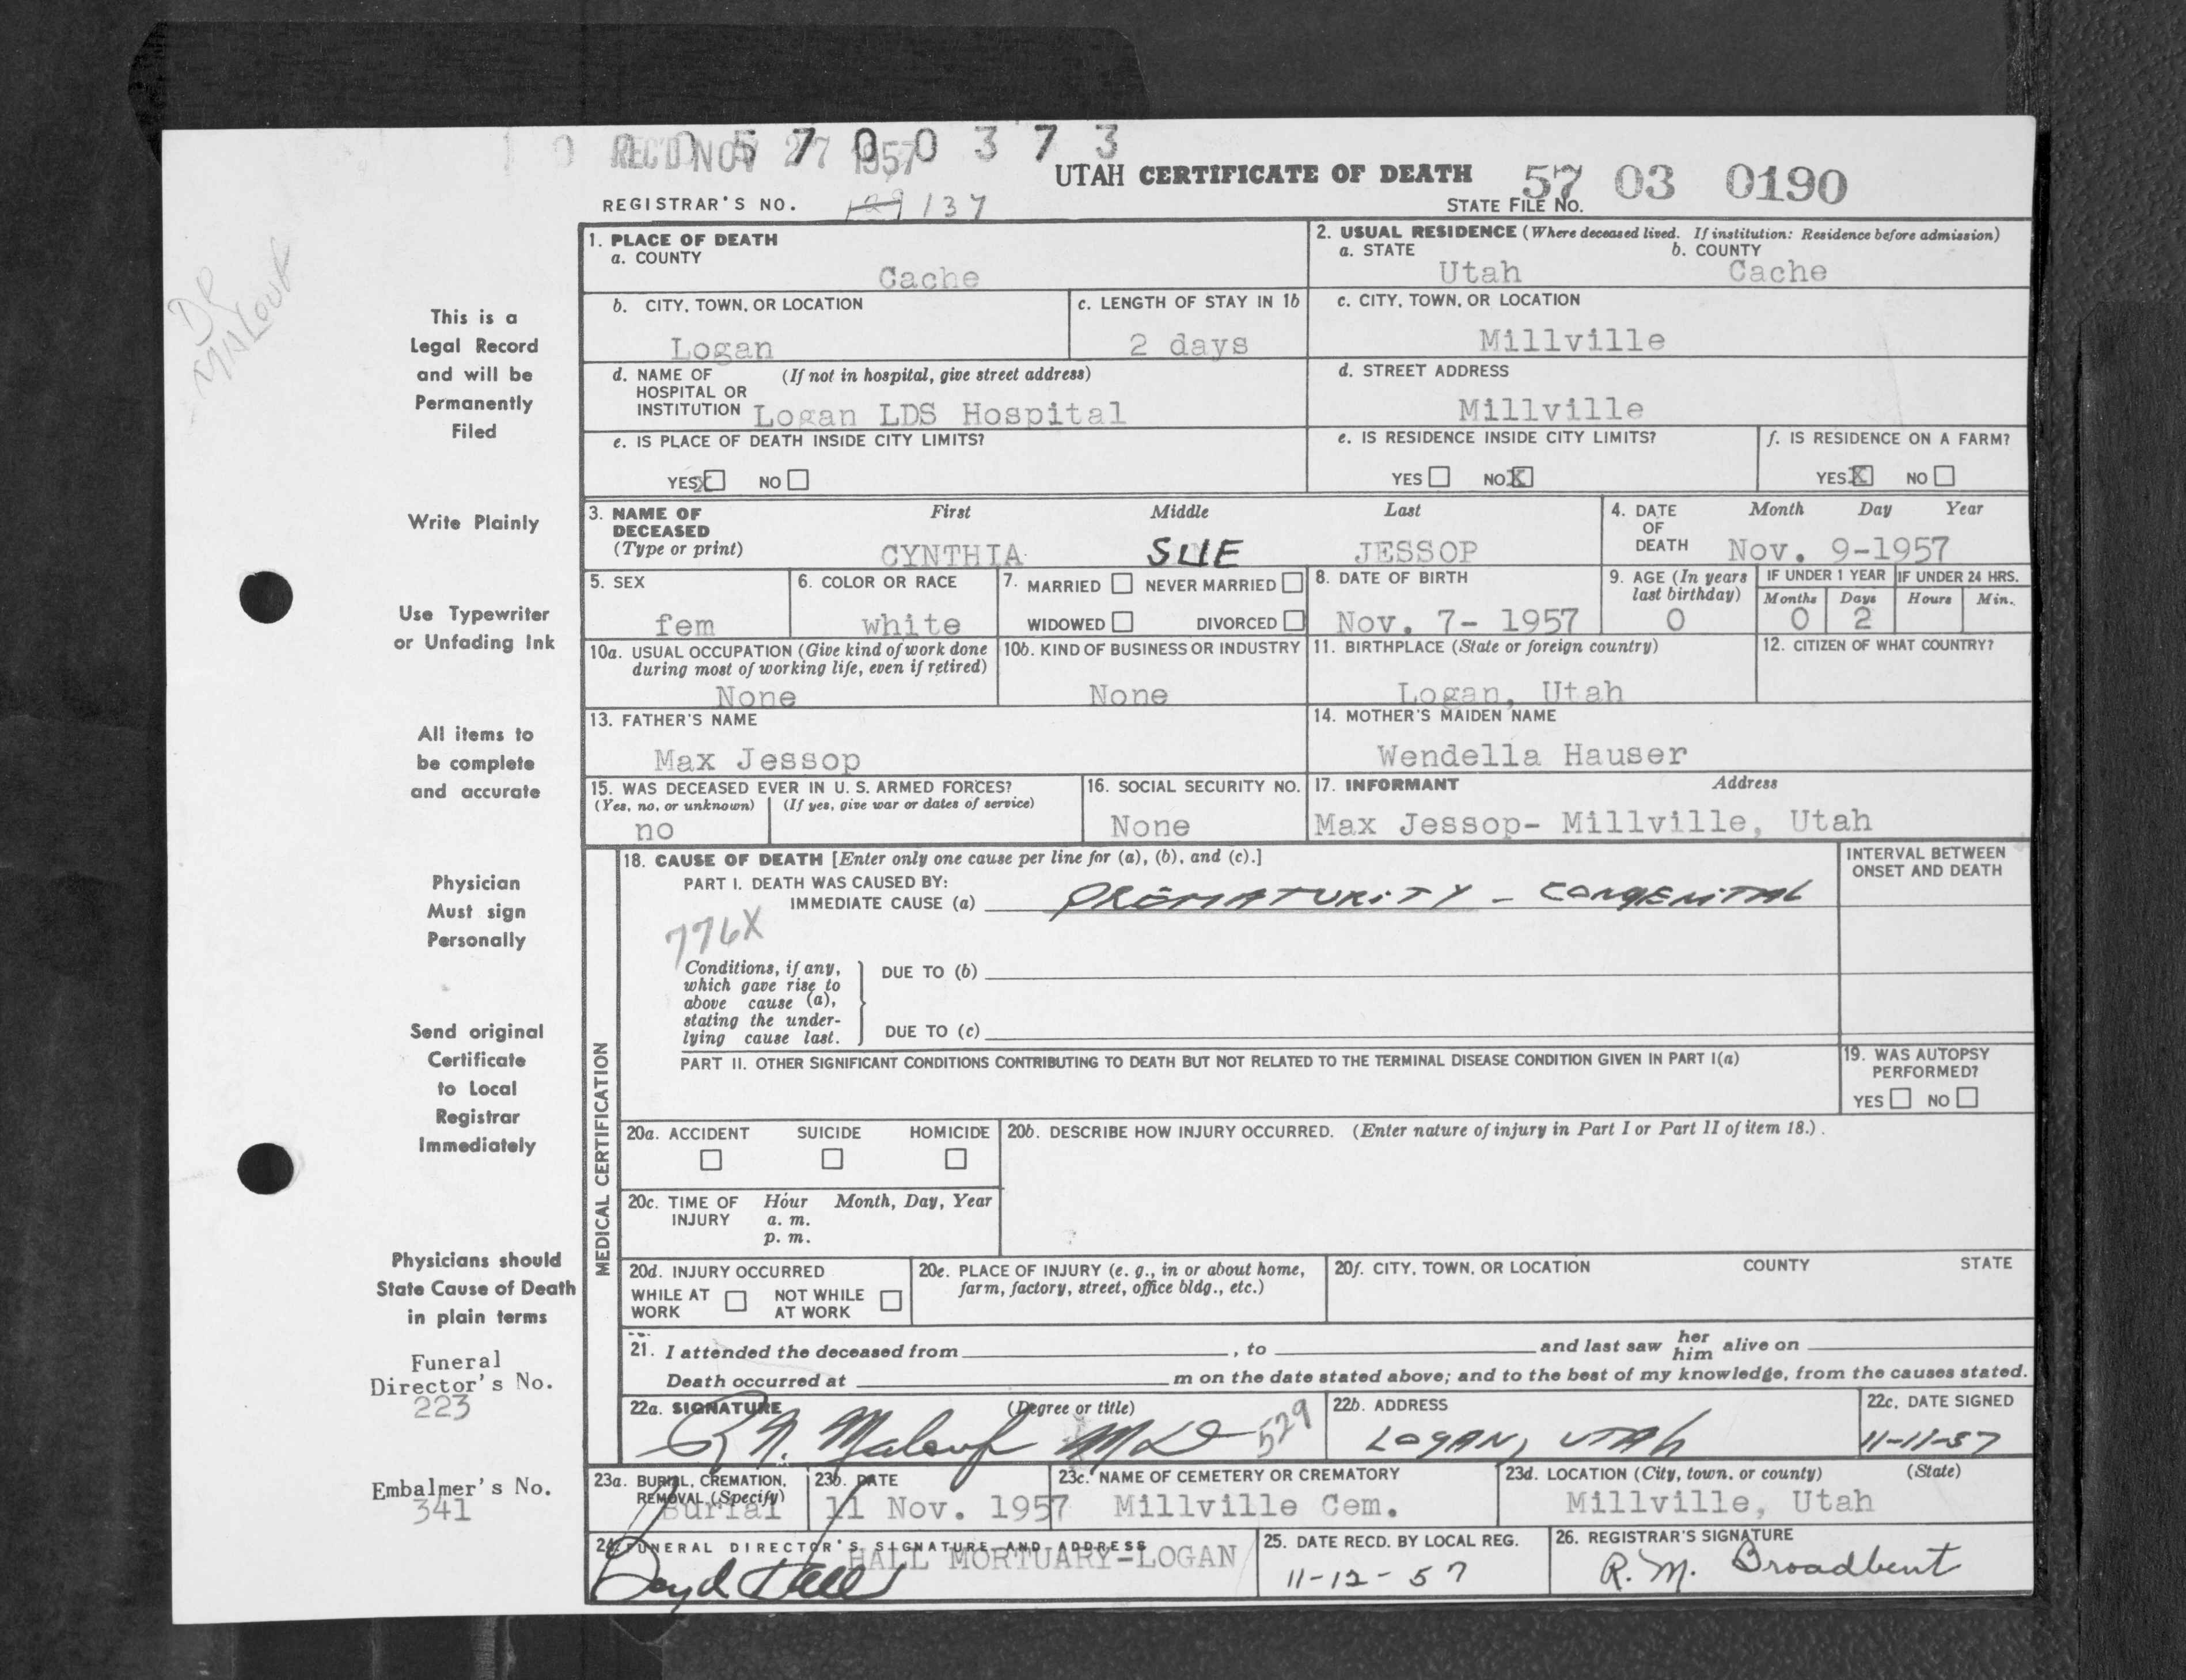 1 0 0 5 7 0 0 3 7 3
REC'D NOV 27 1957
UTAH CERTIFICATE OF DEATH
57 03 0190
REGISTRAR'S NO. 137
STATE FILE NO.
DR MALOUF
This is a
Legal Record
and will be
Permanently
Filed
Write Plainly
Use Typewriter
or Unfading Ink
All items to
be complete
and accurate
Physician
Must sign
Personally
Send original
Certificate
to Local
Registrar
Immediately
Physicians should
State Cause of Death
in plain terms
Funeral
Director's No.
223
Embalmer's No.
341
1. PLACE OF DEATH
a. COUNTY
Cache
2. USUAL RESIDENCE (Where deceased lived. If institution: Residence before admission)
a. STATE b. COUNTY
Utah Cache
b. CITY, TOWN, OR LOCATION
Logan
c. LENGTH OF STAY IN 1b
2 days
c. CITY, TOWN, OR LOCATION
Millville
d. NAME OF (If not in hospital, give street address)
HOSPITAL OR
INSTITUTION Logan LDS Hospital
d. STREET ADDRESS
Millville
e. IS PLACE OF DEATH INSIDE CITY LIMITS?
YES X NO
e. IS RESIDENCE INSIDE CITY LIMITS?
YES NO X
f. IS RESIDENCE ON A FARM?
YES X NO
3. NAME OF First Middle Last
DECEASED
(Type or print) CYNTHIA SUE JESSOP
4. DATE Month Day Year
OF
DEATH Nov. 9-1957
5. SEX
fem
6. COLOR OR RACE
white
7. MARRIED NEVER MARRIED
WIDOWED DIVORCED
8. DATE OF BIRTH
Nov. 7- 1957
9. AGE (In years
last birthday)
0
IF UNDER 1 YEAR IF UNDER 24 HRS.
Months Days Hours Min.
0 2
10a. USUAL OCCUPATION (Give kind of work done
during most of working life, even if retired)
None
10b. KIND OF BUSINESS OR INDUSTRY
None
11. BIRTHPLACE (State or foreign country)
Logan, Utah
12. CITIZEN OF WHAT COUNTRY?
13. FATHER'S NAME
Max Jessop
14. MOTHER'S MAIDEN NAME
Wendella Hauser
15. WAS DECEASED EVER IN U. S. ARMED FORCES?
(Yes, no, or unknown) (If yes, give war or dates of service)
no
16. SOCIAL SECURITY NO.
None
17. INFORMANT Address
Max Jessop- Millville, Utah
MEDICAL CERTIFICATION
18. CAUSE OF DEATH [Enter only one cause per line for (a), (b), and (c).]
INTERVAL BETWEEN
ONSET AND DEATH
PART I. DEATH WAS CAUSED BY:
IMMEDIATE CAUSE (a) PREMATURITY - CONGENITAL
776X
Conditions, if any,
which gave rise to
above cause (a),
stating the under-
lying cause last.
DUE TO (b)
DUE TO (c)
PART II. OTHER SIGNIFICANT CONDITIONS CONTRIBUTING TO DEATH BUT NOT RELATED TO THE TERMINAL DISEASE CONDITION GIVEN IN PART I(a)
19. WAS AUTOPSY
PERFORMED?
YES NO
20a. ACCIDENT SUICIDE HOMICIDE
20b. DESCRIBE HOW INJURY OCCURRED. (Enter nature of injury in Part I or Part II of item 18.)
20c. TIME OF Hour Month, Day, Year
INJURY a. m.
p. m.
20d. INJURY OCCURRED
WHILE AT NOT WHILE
WORK AT WORK
20e. PLACE OF INJURY (e. g., in or about home,
farm, factory, street, office bldg., etc.)
20f. CITY, TOWN, OR LOCATION COUNTY STATE
21. I attended the deceased from , to and last saw her him alive on
Death occurred at m on the date stated above; and to the best of my knowledge, from the causes stated.
22a. SIGNATURE (Degree or title)
Malouf MD 529
22b. ADDRESS
LOGAN, UTAH
22c. DATE SIGNED
11-11-57
23a. BURIAL, CREMATION,
REMOVAL (Specify)
Burial
23b. DATE
11 Nov. 1957
23c. NAME OF CEMETERY OR CREMATORY
Millville Cem.
23d. LOCATION (City, town, or county) (State)
Millville, Utah
24. FUNERAL DIRECTOR'S SIGNATURE AND ADDRESS
HALL MORTUARY-LOGAN
Boyd Hall
25. DATE RECD. BY LOCAL REG.
11-12-57
26. REGISTRAR'S SIGNATURE
R. M. Broadbent